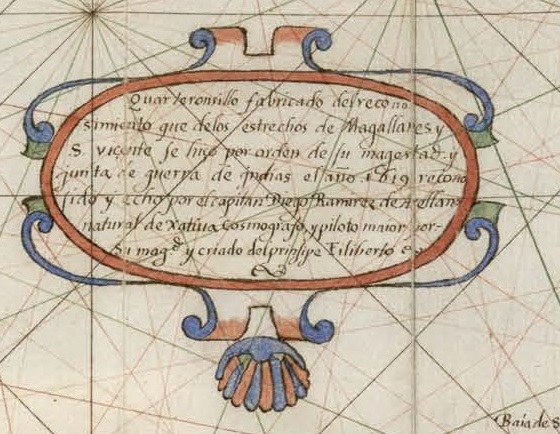 Quarteronsillo fabricado del recono
simiento que de los estrechos de Magallanes y
S. vicente se hiço por orden de su magestad. y
junta de guerra de yndias el año. 1619 recono
sido y echo por el capitan Diego Ramirez de Arellano
natural de Xativa Cosmografo, y piloto maior por
Su magd. y criado del prinsipe Filiberto
Baia de S